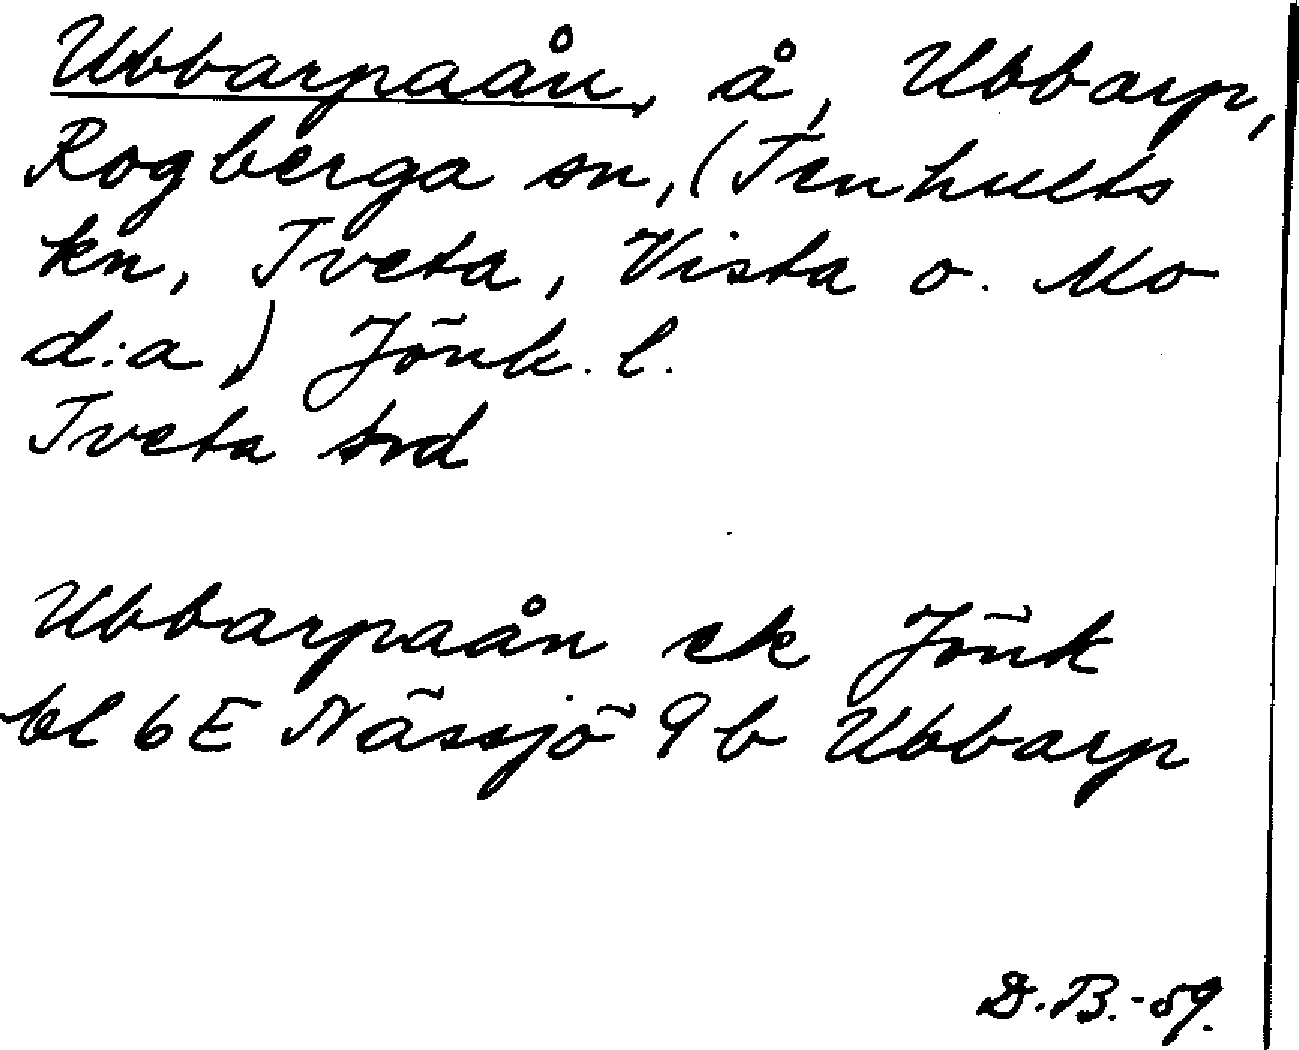 Ubbarpaån, å, Ubbarp,
Rogberga sn, (Tenhults
kn, Tveta, Vista o. Mo
d:a) Jönk. l.
Tveta hrd
Ubbarpaån ek Jönk
bl 6E Nässjö 9b Ubbarp
D.B.-59.